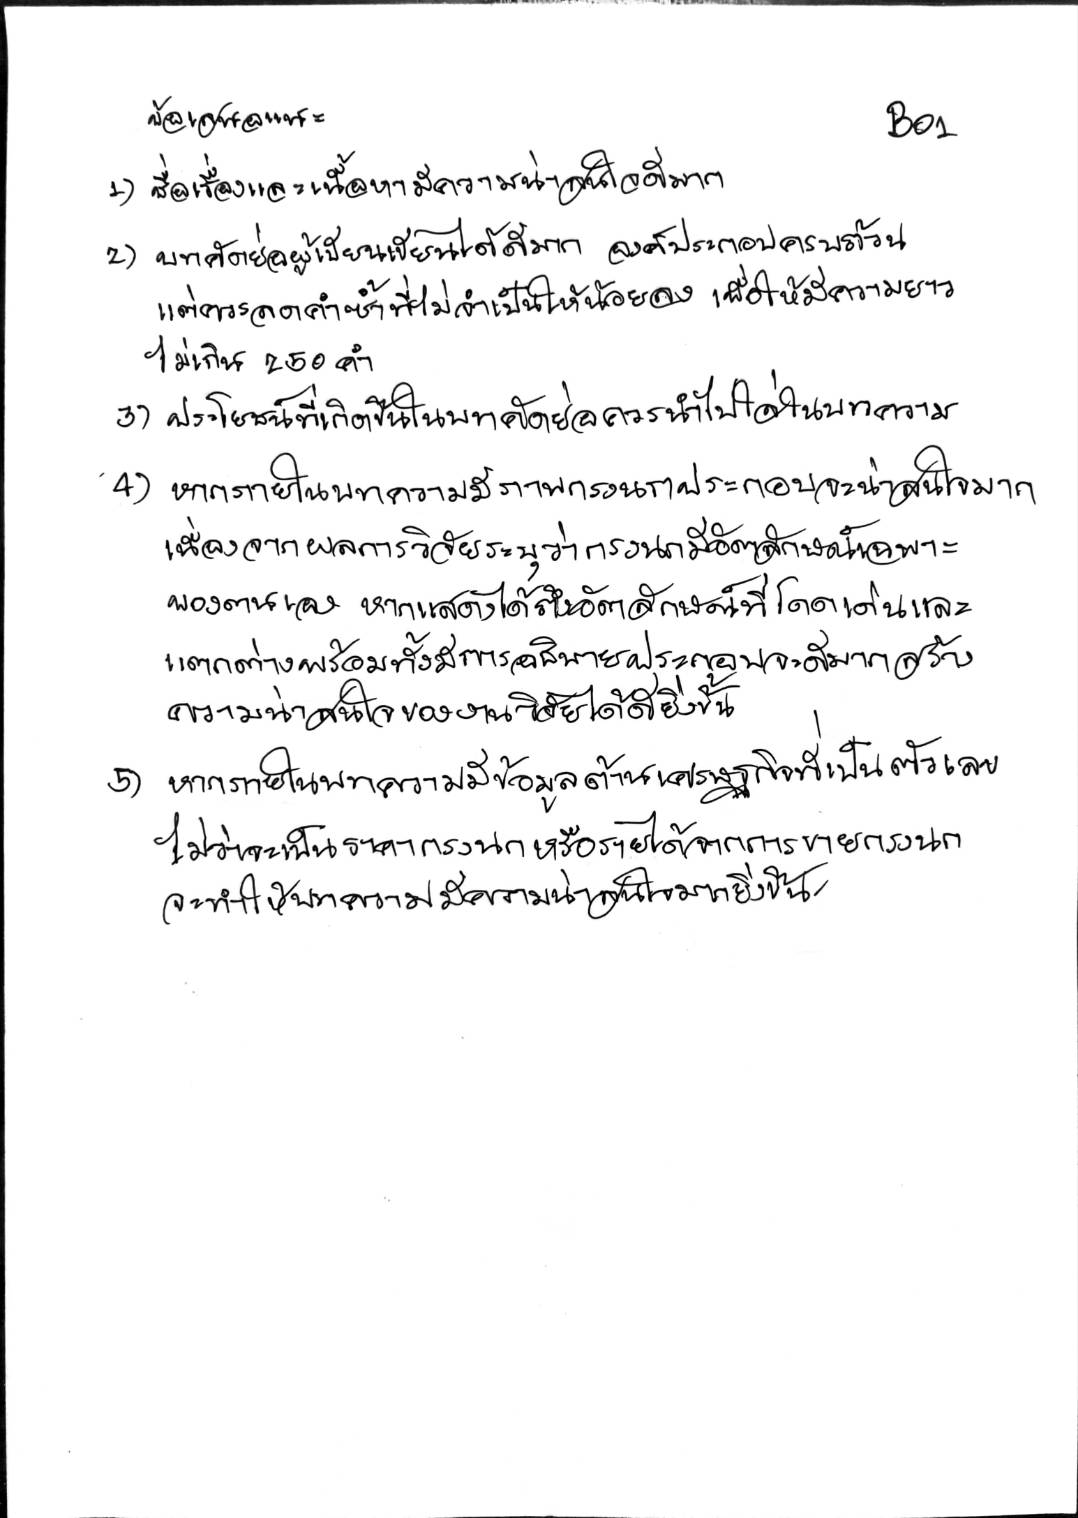 ข้อเสนอแนะ
B01
1) ชื่อเรื่องและเนื้อหามีความน่าสนใจดีมาก
2) บทคัดย่อผู้เขียนเขียนได้ดีมาก องค์ประกอบครบถ้วน
แต่ควรลดคำซ้ำที่ไม่จำเป็นให้น้อยลง เพื่อให้มีความยาว
ไม่เกิน 250 คำ
3) ประโยชน์ที่เกิดขึ้นในบทคัดย่อควรนำไปใส่ในบทความ
4) หากภายในบทความมีภาพกรงนกประกอบจะน่าสนใจมาก
เนื่องจากผลการวิจัยระบุว่ากรงนกมีอัตลักษณ์เฉพาะ
ของตนเอง หากแสดงได้ถึงอัตลักษณ์ที่โดดเด่นและ
แตกต่างพร้อมทั้งมีการอธิบายประกอบจะดีมากสร้าง
ความน่าสนใจของงานวิจัยได้ดียิ่งขึ้น
5) หากภายในบทความมีข้อมูลด้านเศรษฐกิจที่เป็นตัวเลข
ไม่ว่าจะเป็นราคากรงนกหรือรายได้จากการขายกรงนก
จะทำให้บทความมีความน่าสนใจมากยิ่งขึ้น